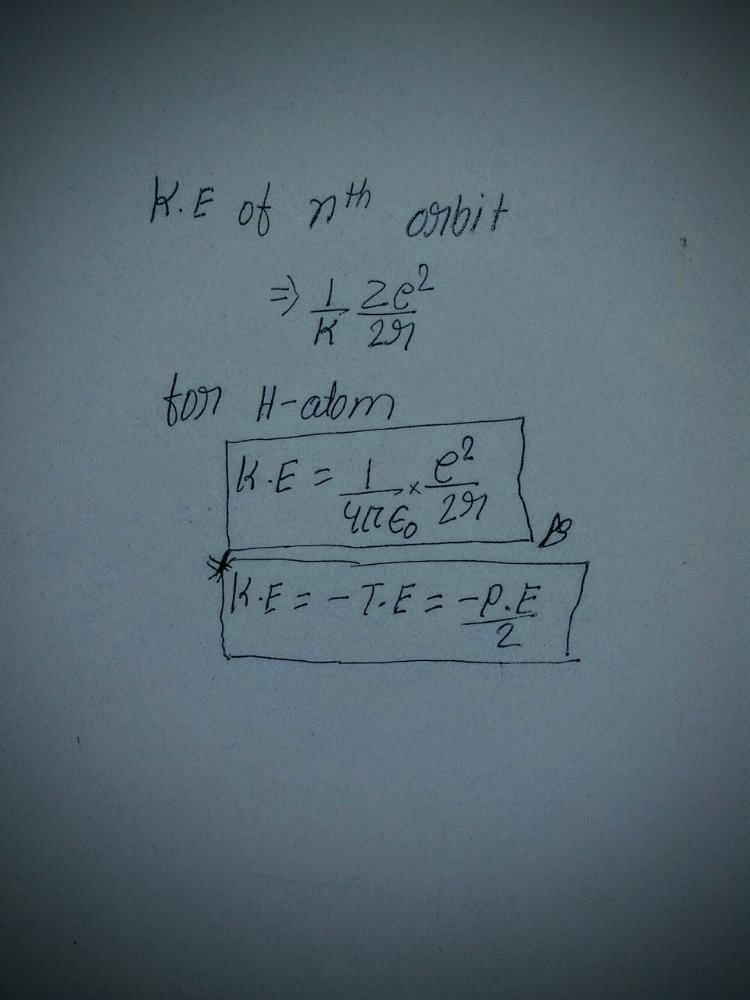 K.E of nth orbit
⇒ 1/K Ze²/2r
for H-atom
K.E = 1/4πε₀ × e²/2r
K.E = -T.E = -P.E/2